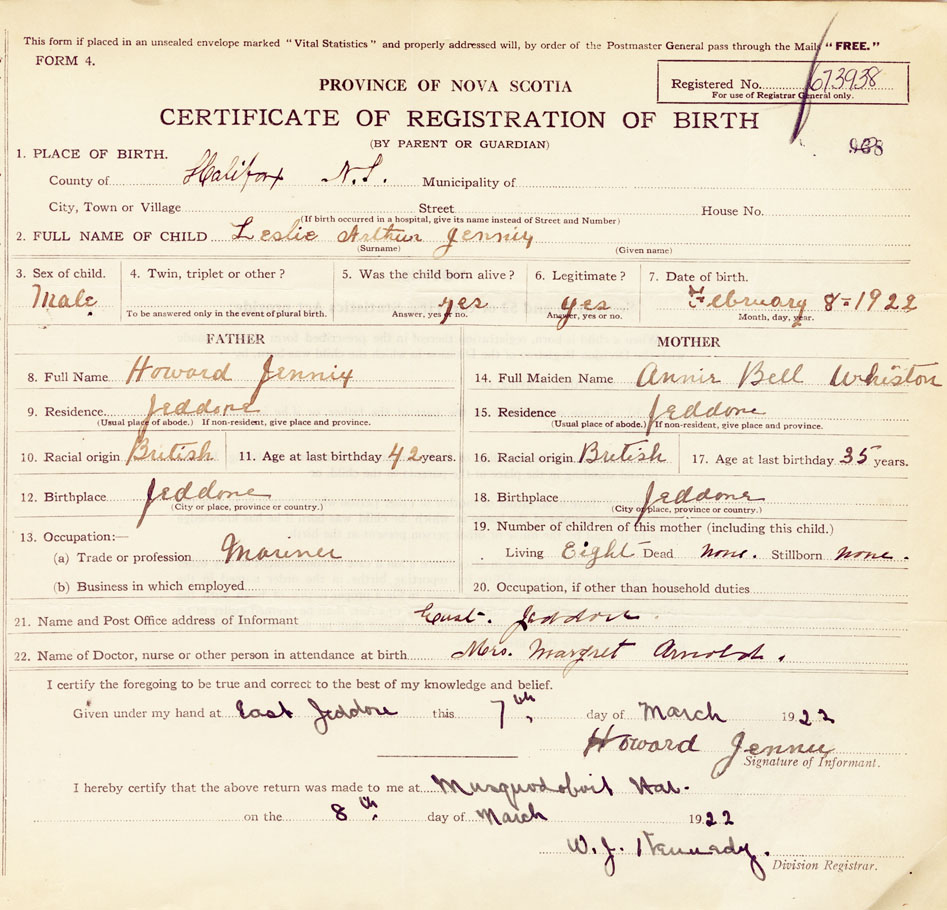 This form if placed in an unsealed envelope marked "Vital Statistics" and properly addressed will, by order of the Postmaster General pass through the Mails "FREE."
FORM 4.
Registered No. 673938
For use of Registrar General only.
PROVINCE OF NOVA SCOTIA
CERTIFICATE OF REGISTRATION OF BIRTH
(BY PARENT OR GUARDIAN)
1. PLACE OF BIRTH.
County of Halifax N.S. Municipality of
City, Town or Village Street House No.
(If birth occurred in a hospital, give its name instead of Street and Number)
2. FULL NAME OF CHILD Leslie Arthur Jennix
(Surname) (Given name)
3. Sex of child. 4. Twin, triplet or other? 5. Was the child born alive? 6. Legitimate? 7. Date of birth.
Male yes yes February 8-1922
To be answered only in the event of plural birth. Answer, yes or no. Answer, yes or no. Month, day, year.
FATHER MOTHER
8. Full Name Howard Jennix 14. Full Maiden Name Annie Bell Whiston
9. Residence Jeddore 15. Residence Jeddore
(Usual place of abode.) If non-resident, give place and province. (Usual place of abode.) If non-resident, give place and province.
10. Racial origin British 11. Age at last birthday 42 years. 16. Racial origin British 17. Age at last birthday 35 years.
12. Birthplace Jeddore 18. Birthplace Jeddore
(City or place, province or country.) (City or place, province or country.)
13. Occupation:— 19. Number of children of this mother (including this child.)
(a) Trade or profession Mariner Living Eight Dead none. Stillborn none.
(b) Business in which employed 20. Occupation, if other than household duties
21. Name and Post Office address of Informant East Jeddore
22. Name of Doctor, nurse or other person in attendance at birth Mrs. Margret Arnold.
I certify the foregoing to be true and correct to the best of my knowledge and belief.
Given under my hand at East Jeddore this 7th day of March 1922
Howard Jennix
Signature of Informant.
I hereby certify that the above return was made to me at Musquodoboit Har.
on the 8th day of March 1922
W. J. Kennedy.
Division Registrar.